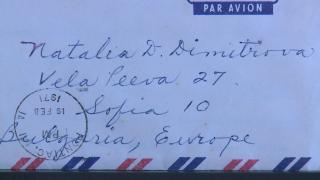 PAR AVION
Natalia D. Dimitrova
Vela Peeva 27.
Sofia 10
Bulgaria, Europe
19 FEB
1971
PM